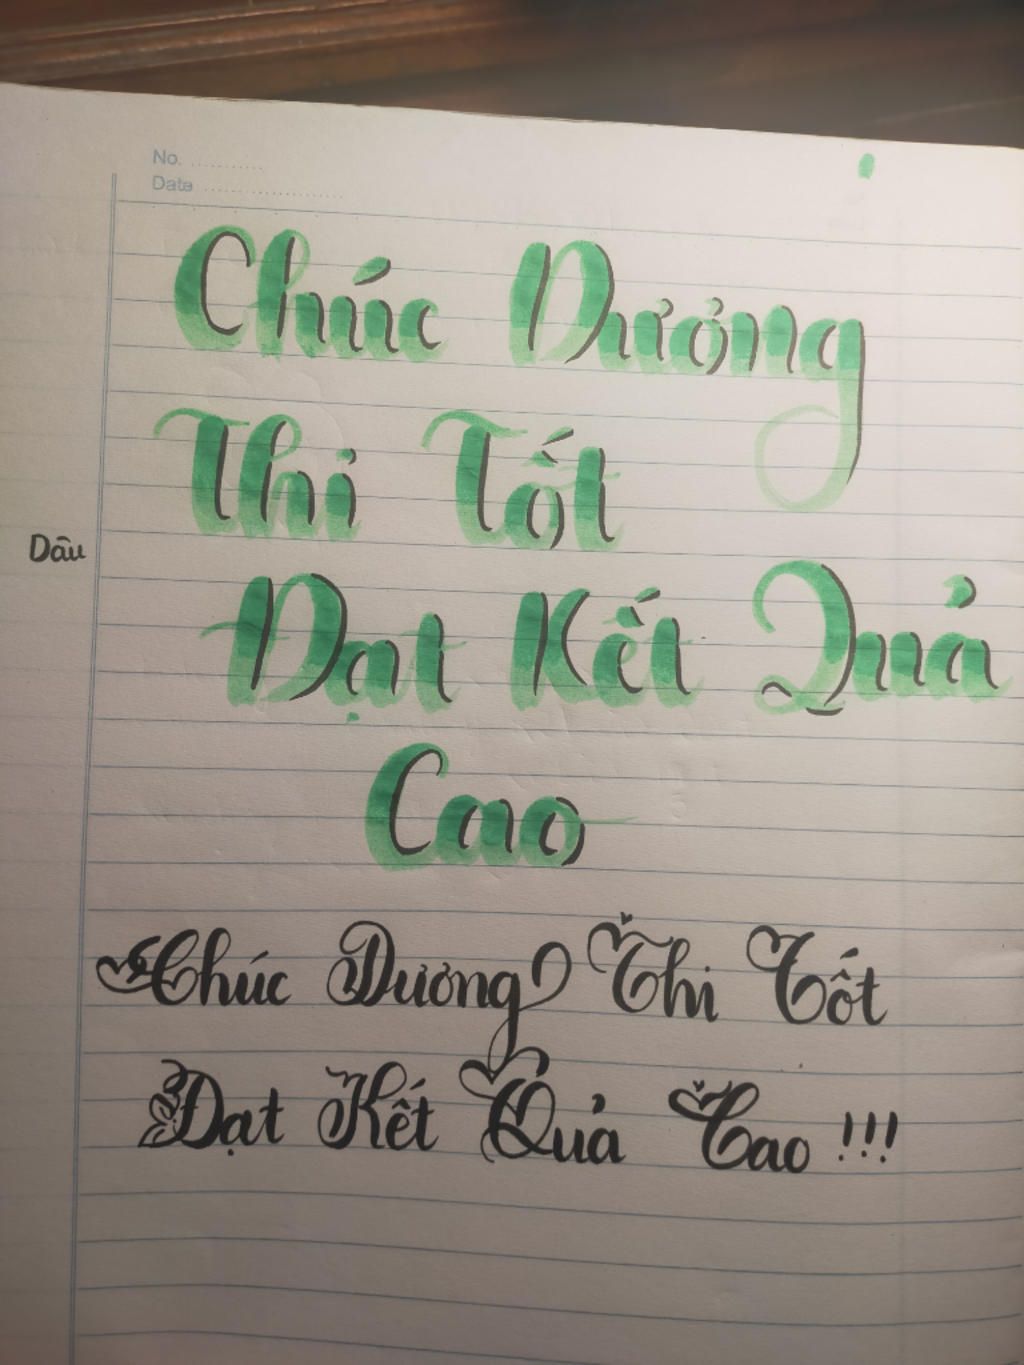 No. ...........
Date .....................
Chúc Dương
Thi Tốt
Dâu
Đạt Kết Quả
Cao
Chúc Dương Thi Tốt
Đạt Kết Quả Cao !!!